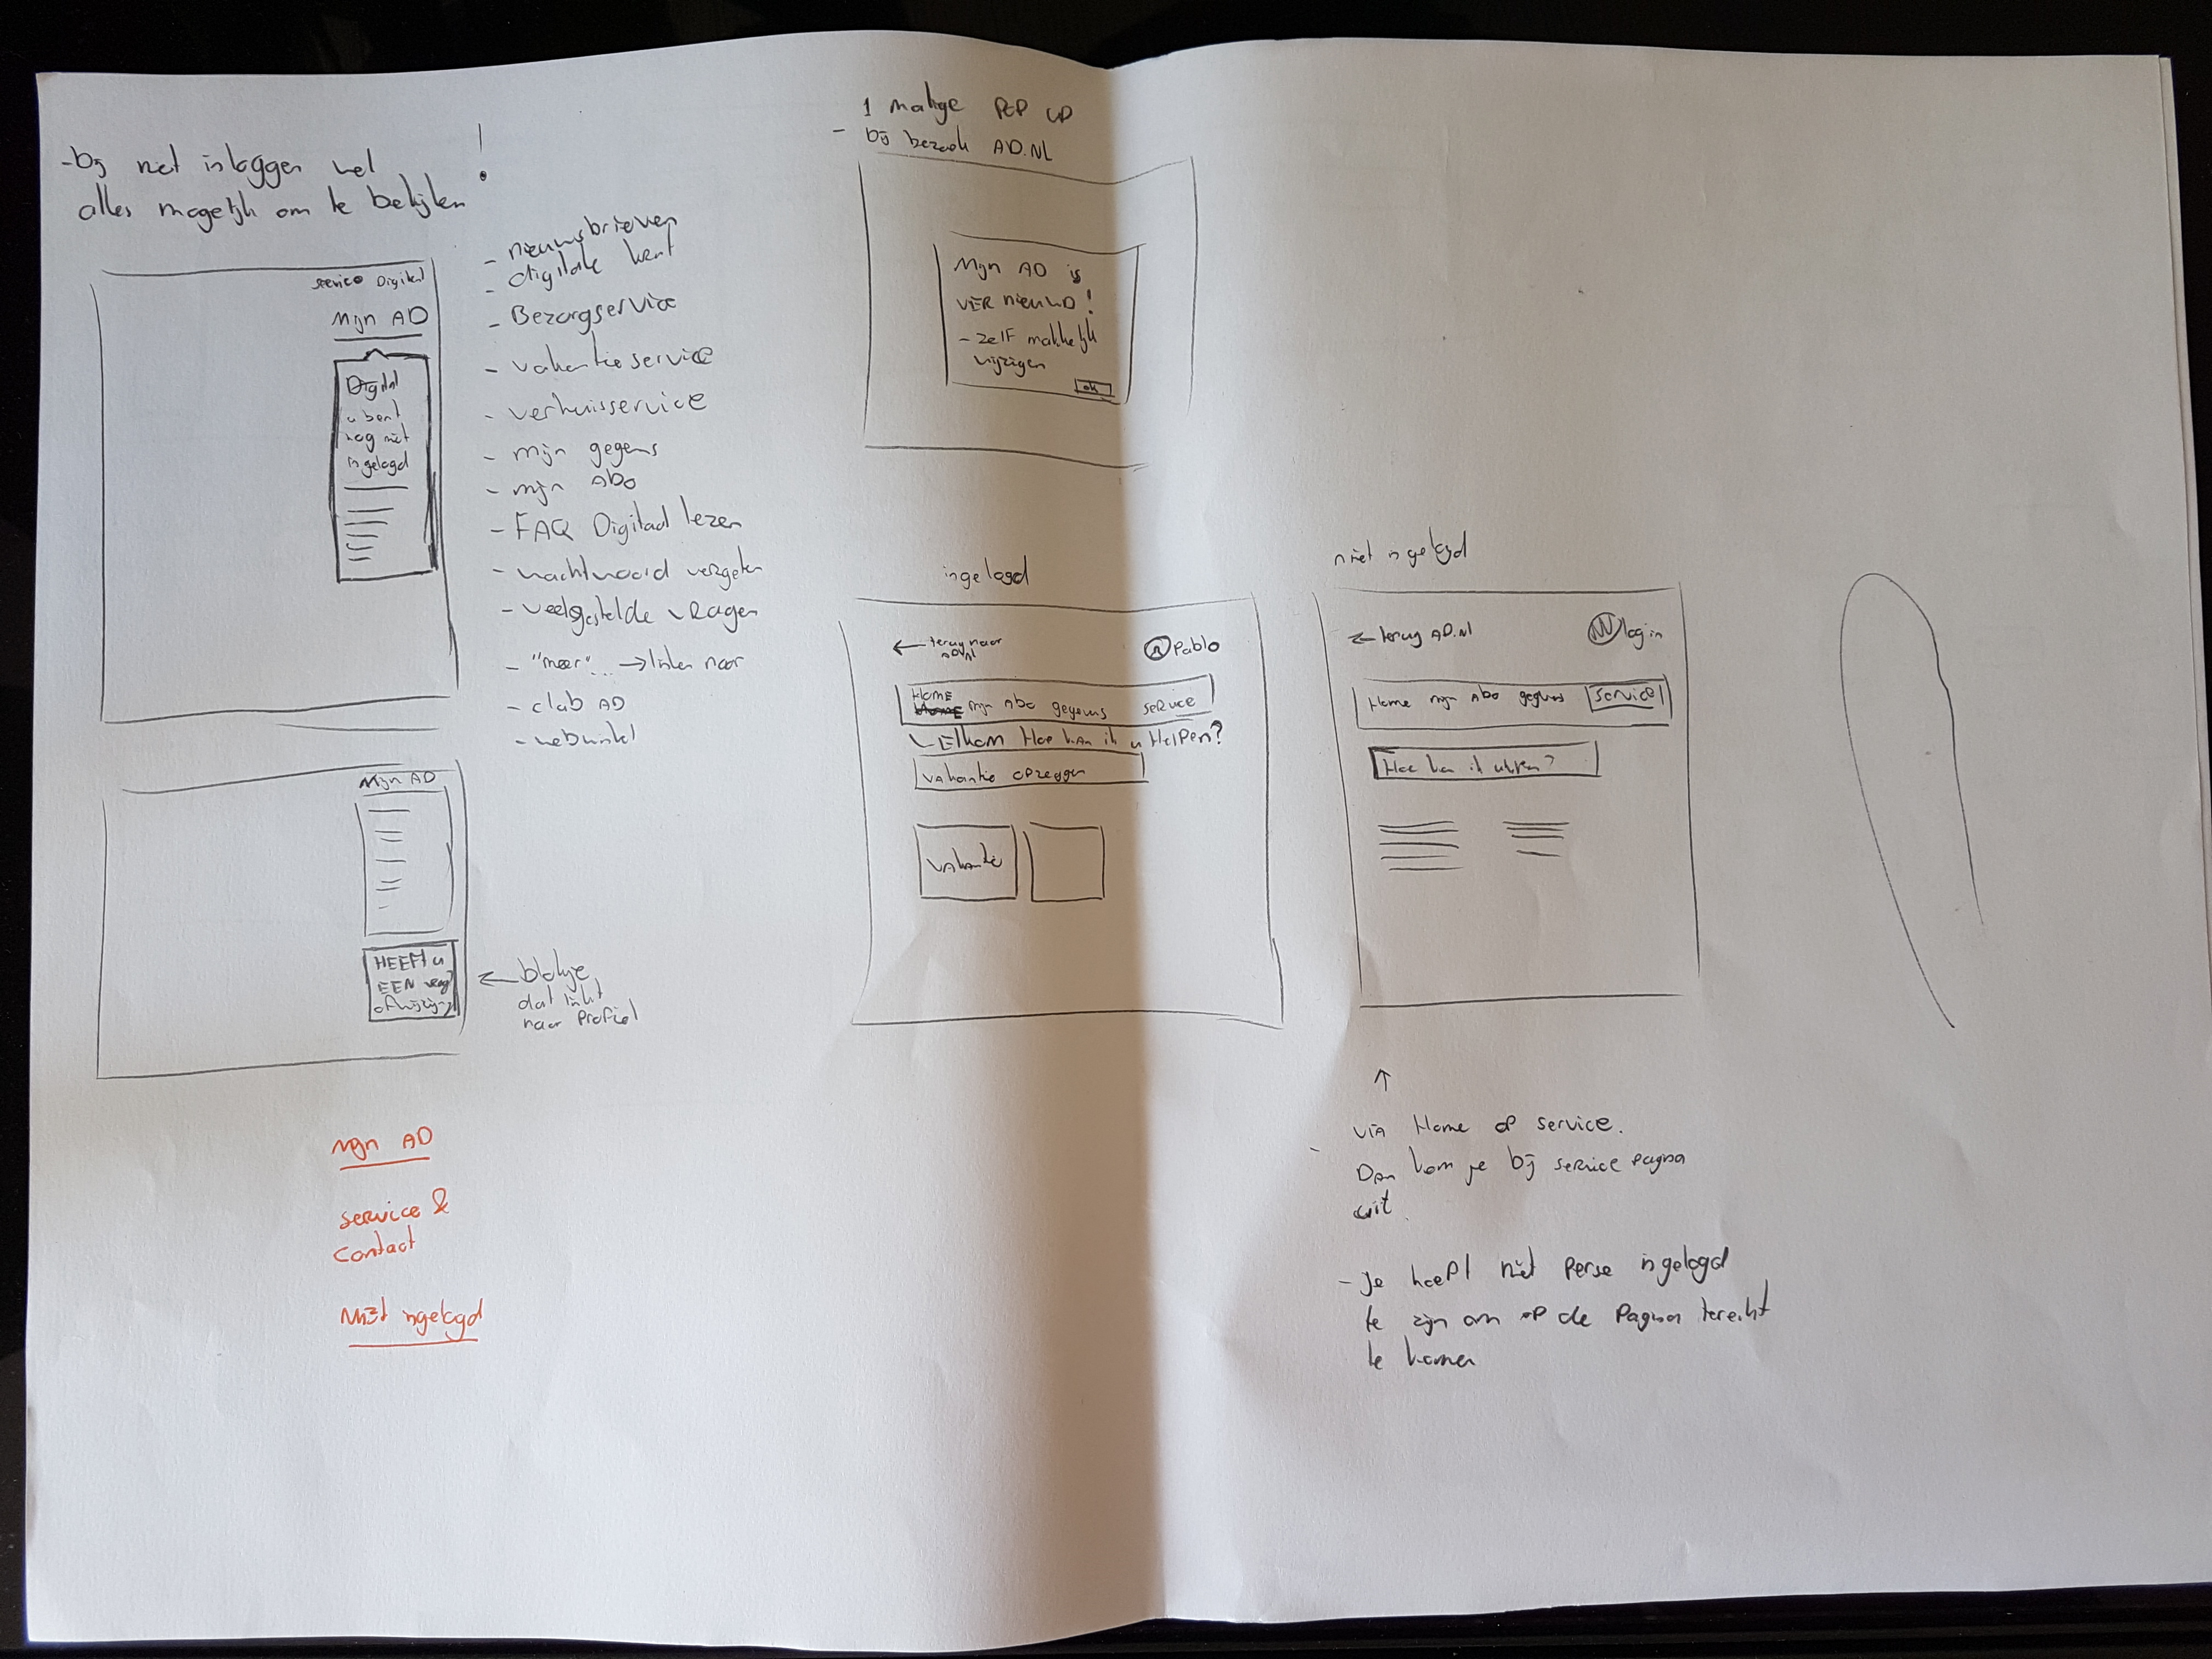 -bij niet inloggen wel !
alles mogelijk om te bekijken
service Digitaal
Mijn AD
Digitaal
u bent
nog niet
ingelogd
- nieuwsbrieven
- digitale krant
- Bezorgservice
- vakantieservice
- verhuisservice
- mijn gegens
- mijn Abo
- FAQ Digitaal lezen
- wachtwoord vergeten
- veelgestelde vragen
- "meer"... → linken naar
- club AD
- webwinkel
Mijn AD
HEEFT u
EEN vraag
of wijziging
← blokje
dat linkt
naar Profiel
Mijn AD
service &
contact
Niet ingelogd
1 malige POP UP
- bij bezoek AD.NL
Mijn AD is
VERnieuwD!
- zelf makkelijk
wijzigen
ok
ingelogd
← terug naar
AD.nl
Pablo
Home
mijn Abo gegevens service
WElkom Hoe kan ik u HelPen?
vakantie opzeggen
vakantie
niet ingelogd
← terug AD.nl
login
Home mijn Abo gegevens service
Hoe kan ik u helpen?
↑
via Home op service.
Dan kom je bij service pagina
uit.
- je hoeft niet perse ingelogd
te zijn om op de pagina terecht
te komen